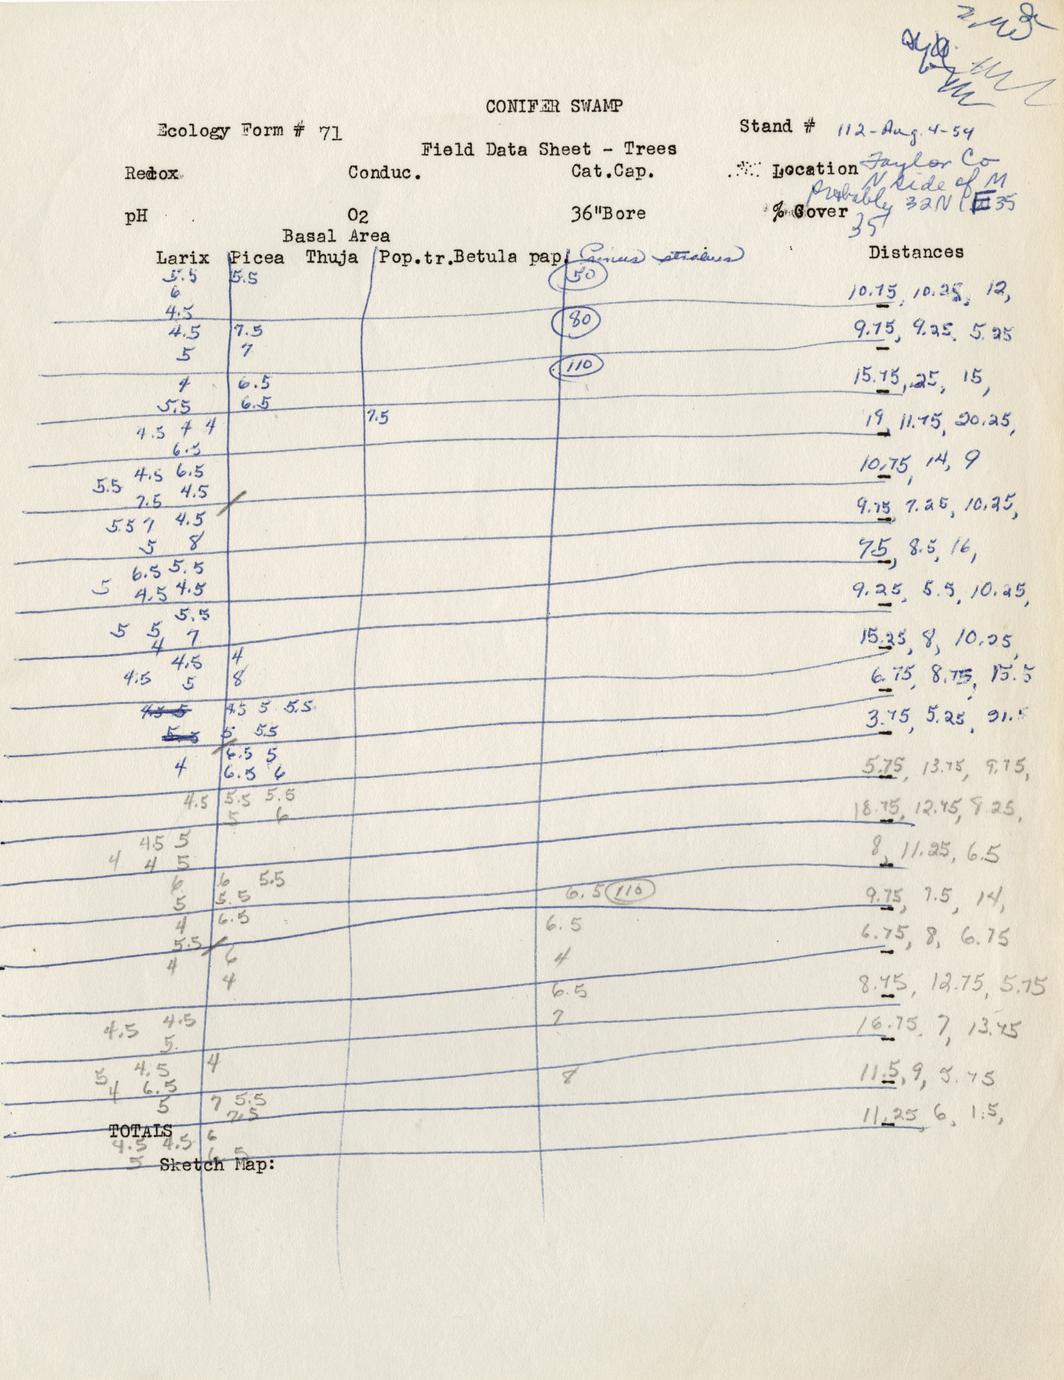 CONIFER SWAMP
Ecology Form # 71
Stand # 112-Aug. 4-54
Field Data Sheet - Trees
Redox Conduc. Cat.Cap. Location Taylor Co
N side of M
Probably 32N 1E 35
pH O2 36"Bore % Cover
35
Basal Area
Larix Picea Thuja Pop.tr. Betula pap. Pinus strobus Distances
5.5 5.5 50
6 10.75, 10.25, 12,
4.5
4.5 7.5 80 9.75, 9.25, 5.25
5 7
110
4 6.5 15.75, 25, 15,
5.5 6.5
7.5 19, 11.75, 20.25,
4.5 4 4
6.5
4.5 6.5 10.75, 14, 9
5.5 4.5
7.5
9.75, 7.25, 10.25,
5.5 7 4.5
5 8 7.5, 8.5, 16,
6.5 5.5
5 4.5 4.5 9.25, 5.5, 10.25,
5.5
5 5 7 15.25, 8, 10.25,
4 4
4.5
4.5 5 8 6.75, 8.75, 15.5
4.5 5 4.5 5 5.5 3.75, 5.25, 21.5
5.5 5 5.5
6.5 5
4 6.5 6 5.75, 13.75, 9.75,
4.5 5.5 5.5 18.75, 12.75, 8.25,
5 6
4.5 5
4 4 5 8, 11.25, 6.5
6 6 5.5
5 5.5 6.5 110 9.75, 7.5, 14,
4 6.5 6.5
5.5 6 6.75, 8, 6.75
4 4
4 6.5 8.75, 12.75, 5.75
4.5 4.5 7 16.75, 7, 13.75
5
4.5 4
5 6.5 8 11.5, 9, 5.75
4
5 7 5.5
7.5 11.25, 6, 1.5,
TOTALS 6
4.5 4.5
5 6 5
Sketch Map: